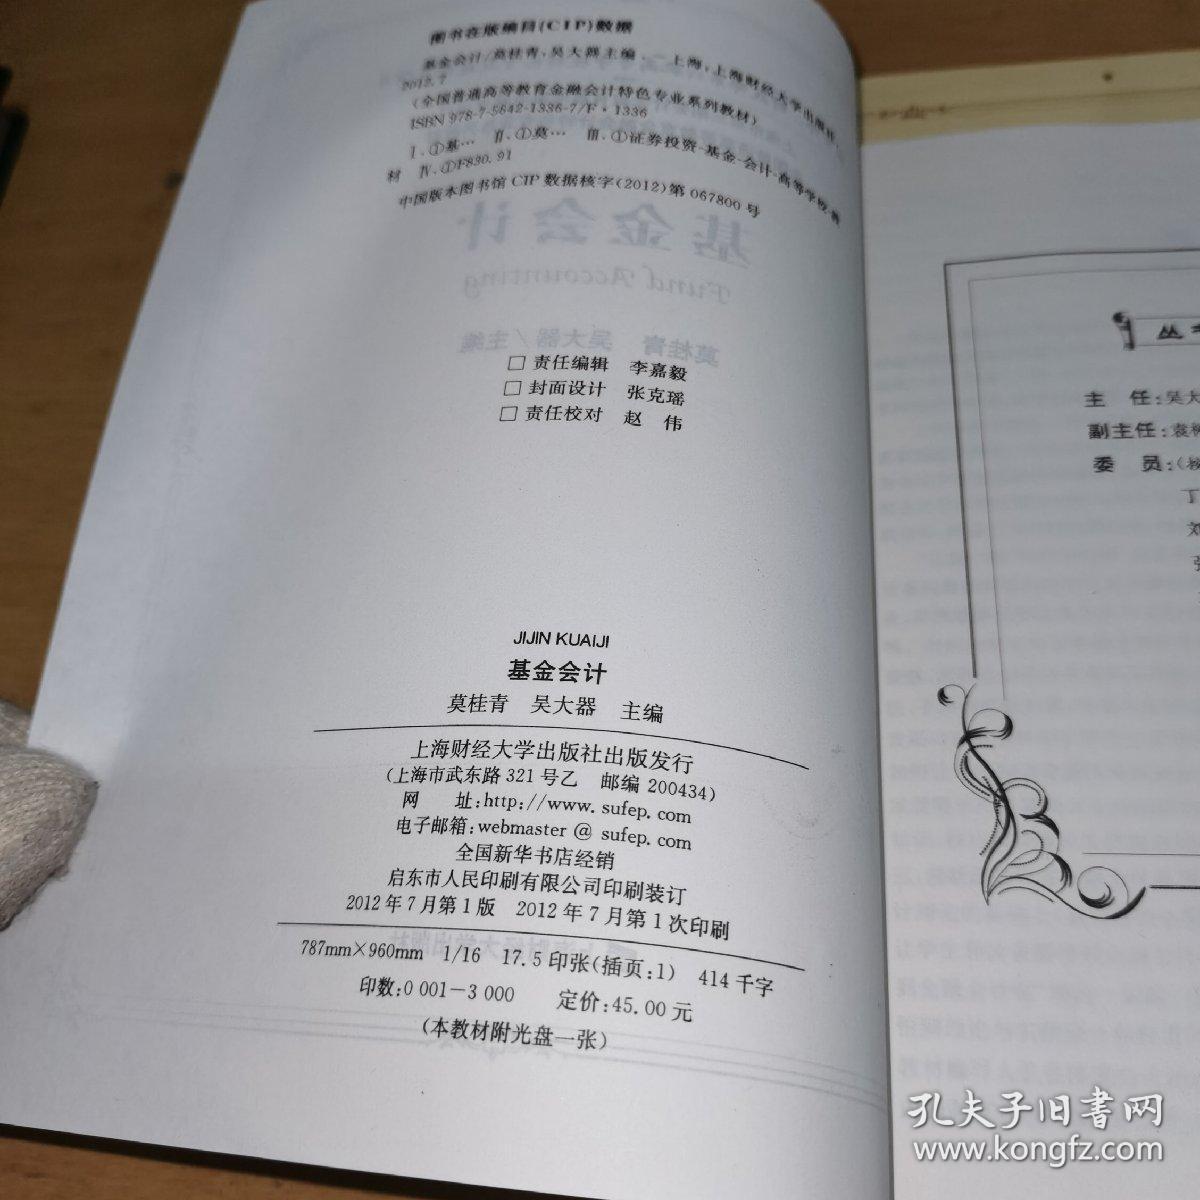 图书在版编目(CIP)数据
基金会计/莫桂青,吴大器主编. 上海:上海财经大学出版社,
2012.7
(全国普通高等教育金融会计特色专业系列教材)
ISBN 978-7-5642-1336-7/F·1336
Ⅰ.①基… Ⅱ.①莫… Ⅲ.①证券投资-基金-会计-高等学校-教
材 Ⅳ.①F830.91
中国版本图书馆CIP数据核字(2012)第067800号
基金会计
Fund Accounting
莫桂青 吴大器/主编
□ 责任编辑 李嘉毅
□ 封面设计 张克瑶
□ 责任校对 赵 伟
JIJIN KUAIJI
基金会计
莫桂青 吴大器 主编
上海财经大学出版社出版发行
(上海市武东路321号乙 邮编200434)
网 址:http://www.sufep.com
电子邮箱:webmaster @ sufep.com
全国新华书店经销
启东市人民印刷有限公司印刷装订
2012年7月第1版 2012年7月第1次印刷
787mm×960mm 1/16 17.5印张(插页:1) 414千字
印数:0 001-3 000 定价:45.00元
(本教材附光盘一张)
丛
主 任:吴大
副主任:袁
委 员:(
丁
刘
张
孔夫子旧书网
www.kongfz.com